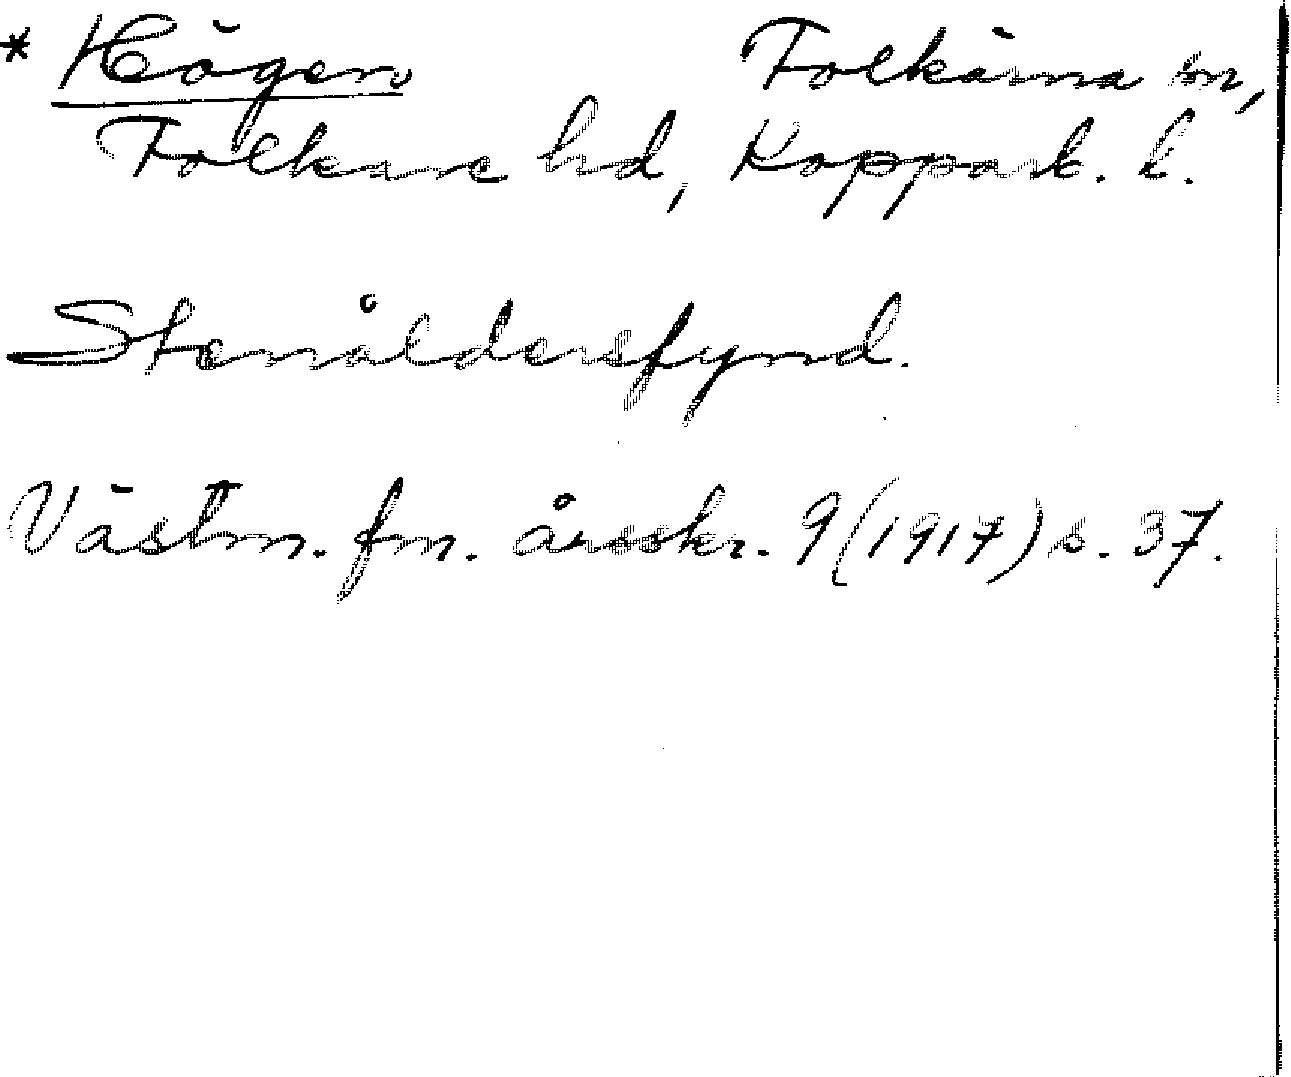 * Högen Folkärna sn,
Folkare hd, Kopparb. l.
Stenåldersfynd.
Västm. fm. årsskr. 9 (1917) s. 37.